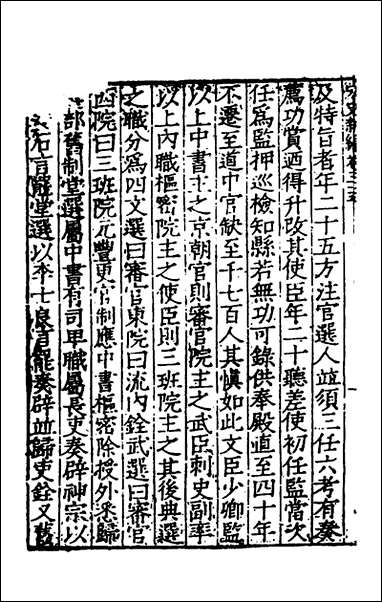 及特旨者年二十五方注官選人並須三任六考有奏
薦功賞迺得升改其使臣年二十聽差使初任監當次
任爲監押巡檢知縣若無功可錄供奉殿直至四十年
不遷至道中官缺至千七百人其慎如此文臣少卿監
以上中書主之京朝官則審官院主之武臣刺史副率
以上内職樞密院主之使臣則三班院主之其後典選
之職分爲四文選曰審官東院曰流内銓武選曰審官
西院曰三班院元豐更官制應中書樞密除授外悉歸
部舊制堂選屬中書有司甲職屬長吏奏辟神宗以
右言罷堂選以李士良言罷奏辟並歸吏銓又舊